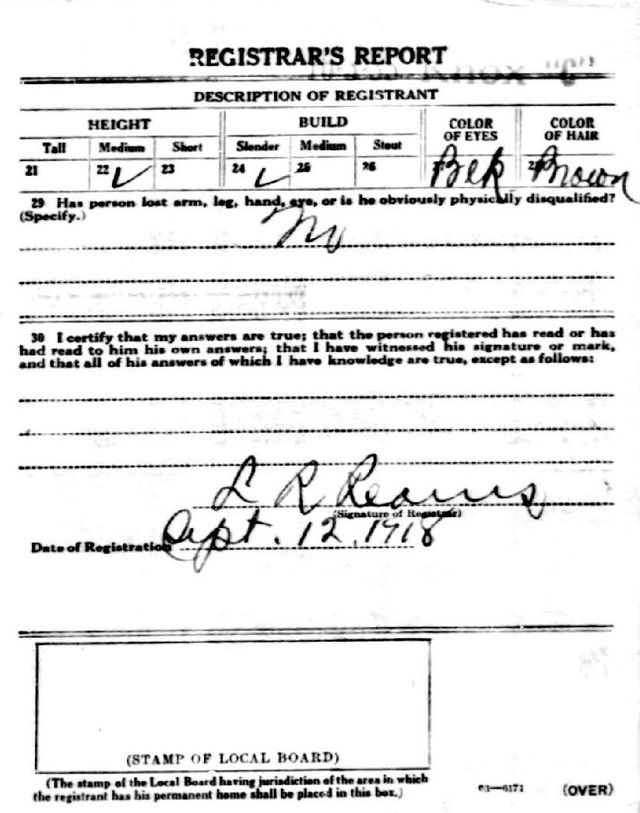 REGISTRAR'S REPORT
DESCRIPTION OF REGISTRANT
HEIGHT BUILD COLOR OF EYES COLOR OF HAIR
Tall Medium Short Slender Medium Stout
21 22 ✓ 23 24 ✓ 25 26 Blk Brown
29 Has person lost arm, leg, hand, eye, or is he obviously physically disqualified?
(Specify.) No
30 I certify that my answers are true; that the person registered has read or has
had read to him his own answers; that I have witnessed his signature or mark,
and that all of his answers of which I have knowledge are true, except as follows:
L R Reams
(Signature of Registrar)
Date of Registration Sept. 12, 1918
(STAMP OF LOCAL BOARD)
(The stamp of the Local Board having jurisdiction of the area in which
the registrant has his permanent home shall be placed in this box.)
03—6171 (OVER)